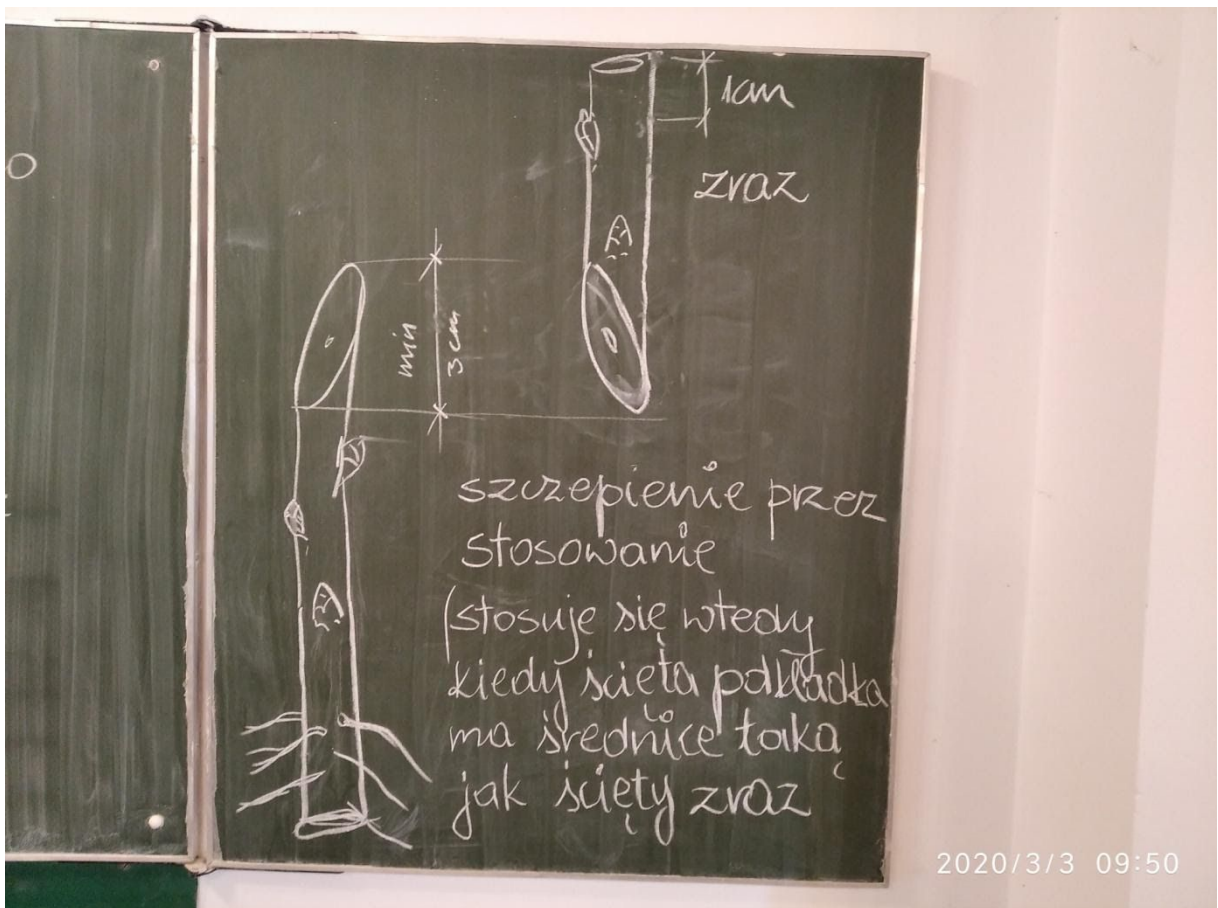 1cm
zraz
min
3 cm
szczepienie przez
stosowanie
(stosuje się wtedy
kiedy ścięta podkładka
ma średnice taką
jak ścięty zraz
2020/3/3 09:50